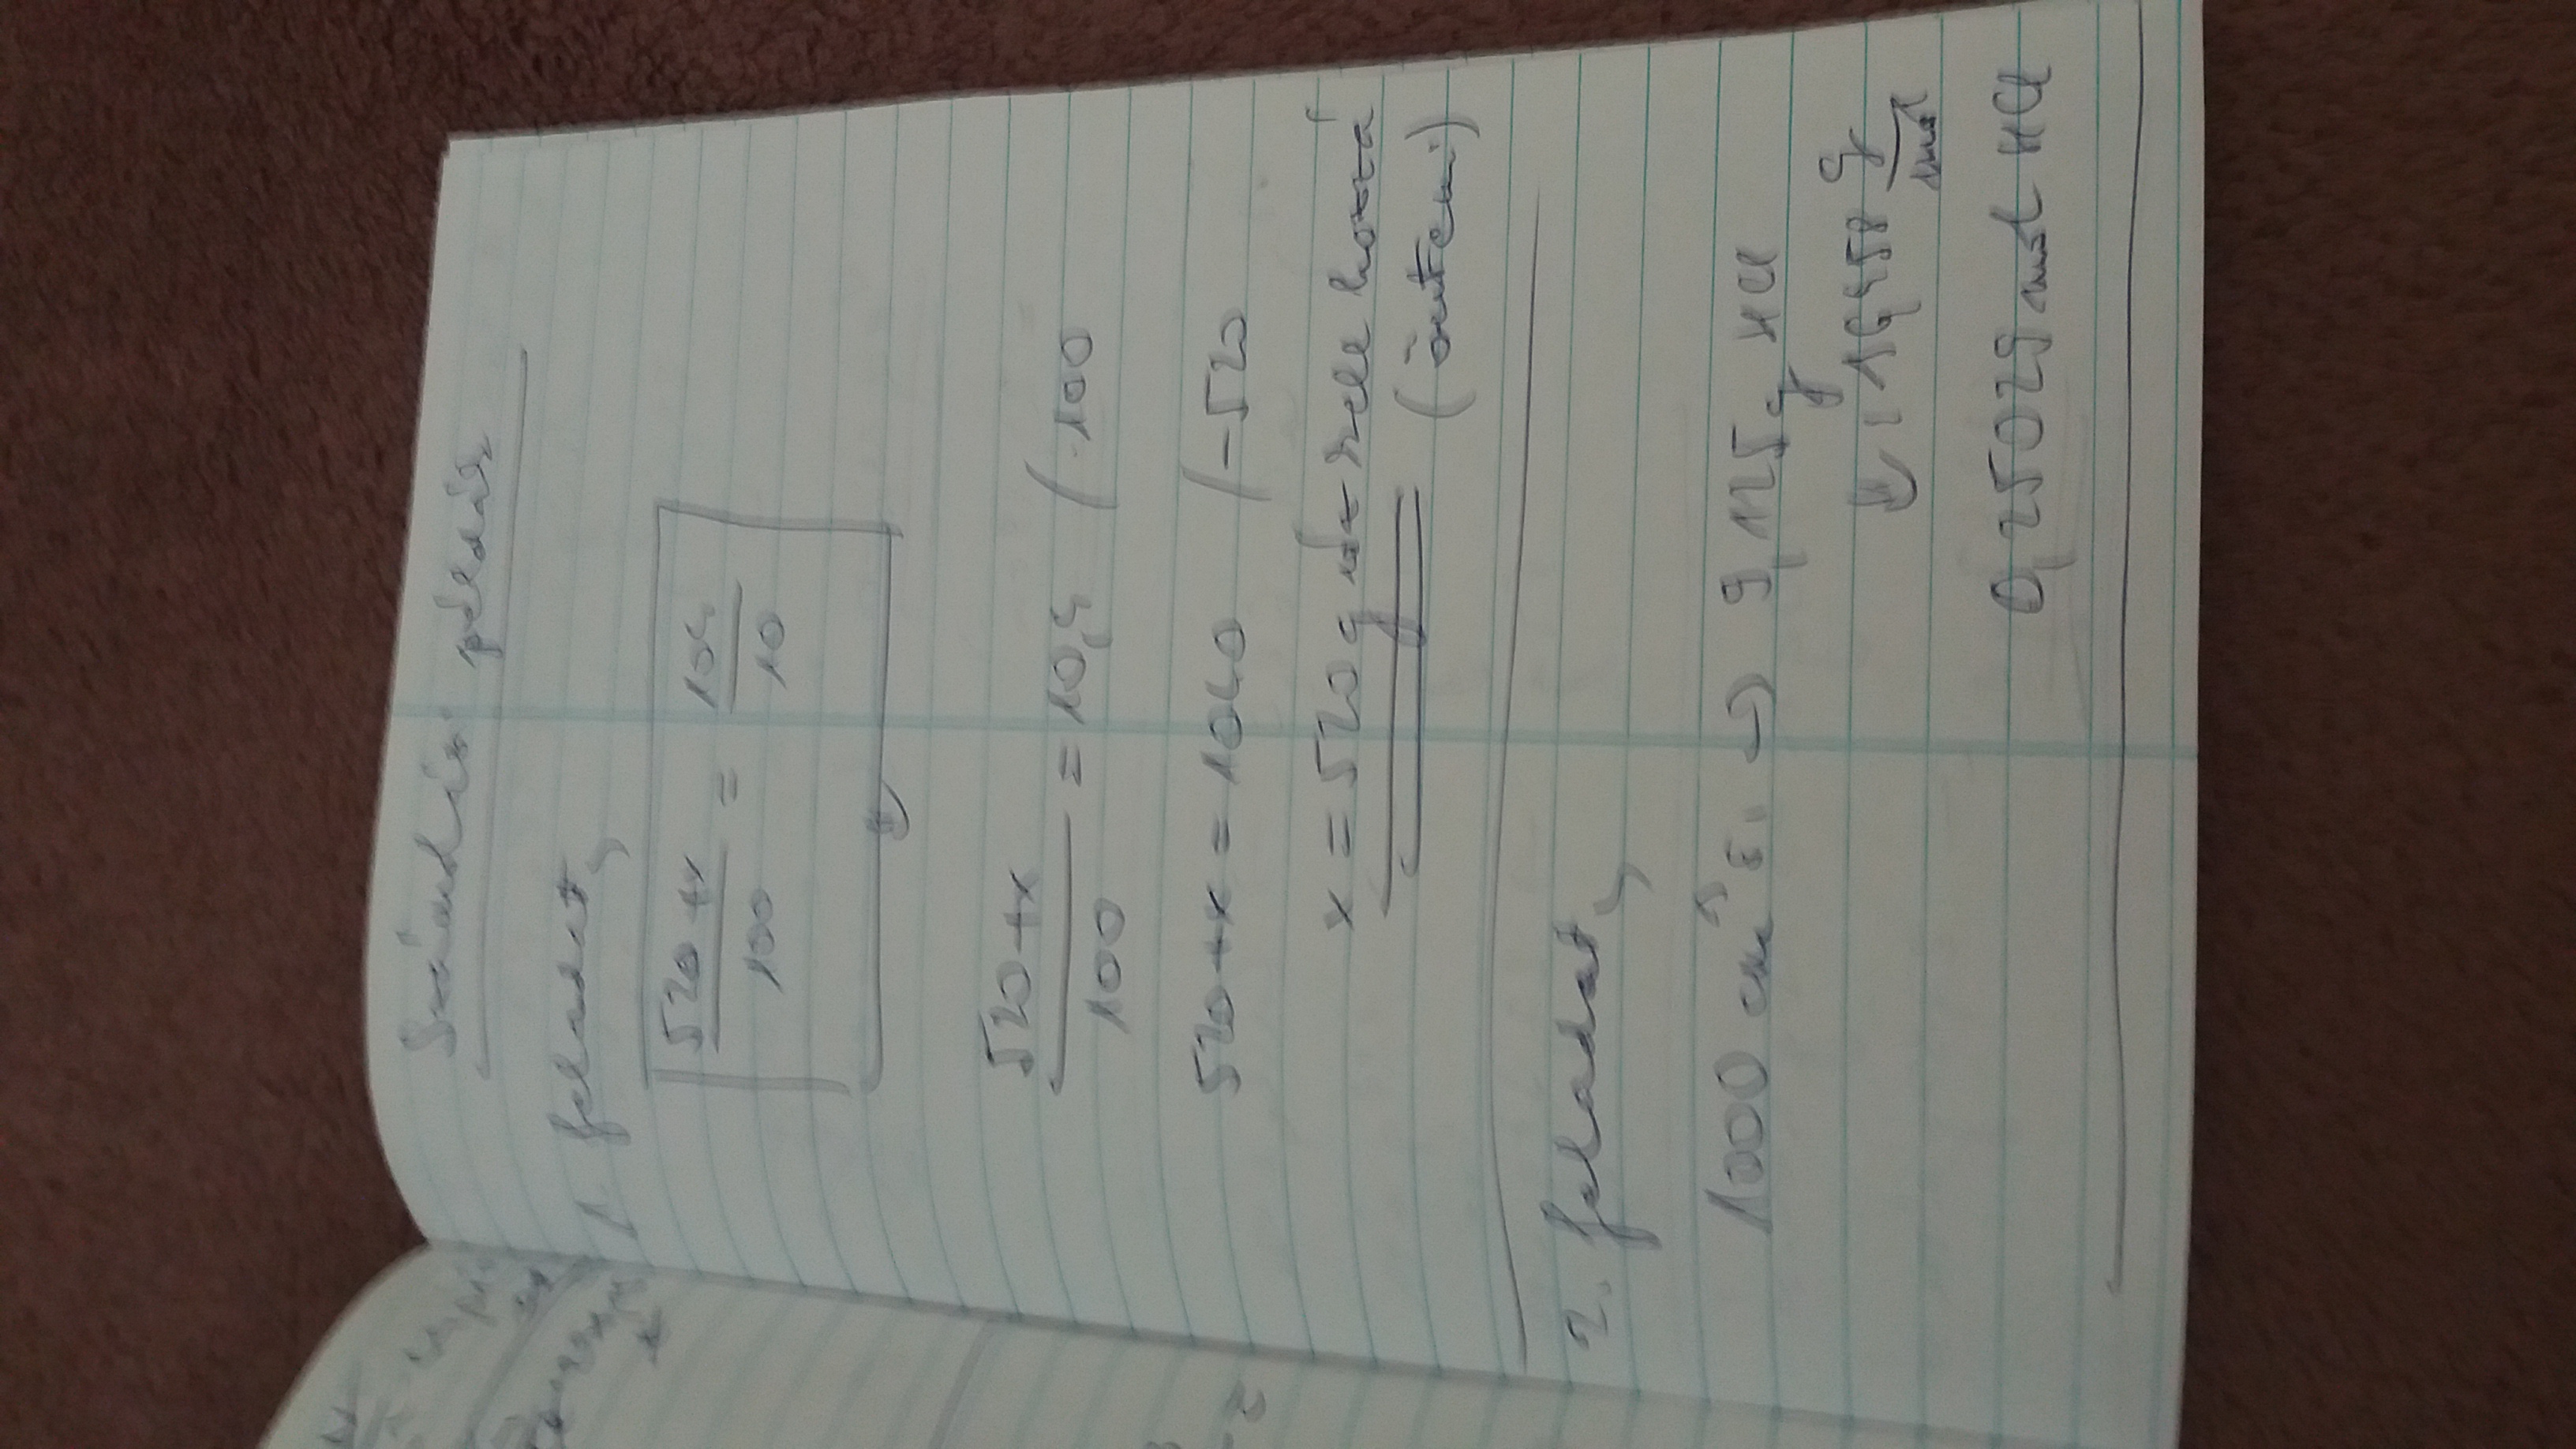 Számolás példák
1. feladat,
520+x / 100 = 104 / 10
520+x / 100 = 10,4 / ·100
520+x = 1040 / -520
x = 520 g víz kell hozzá
(önteni)
2. feladat,
1000 cm³ → 9,125 g HCl
0,25029 mol HCl